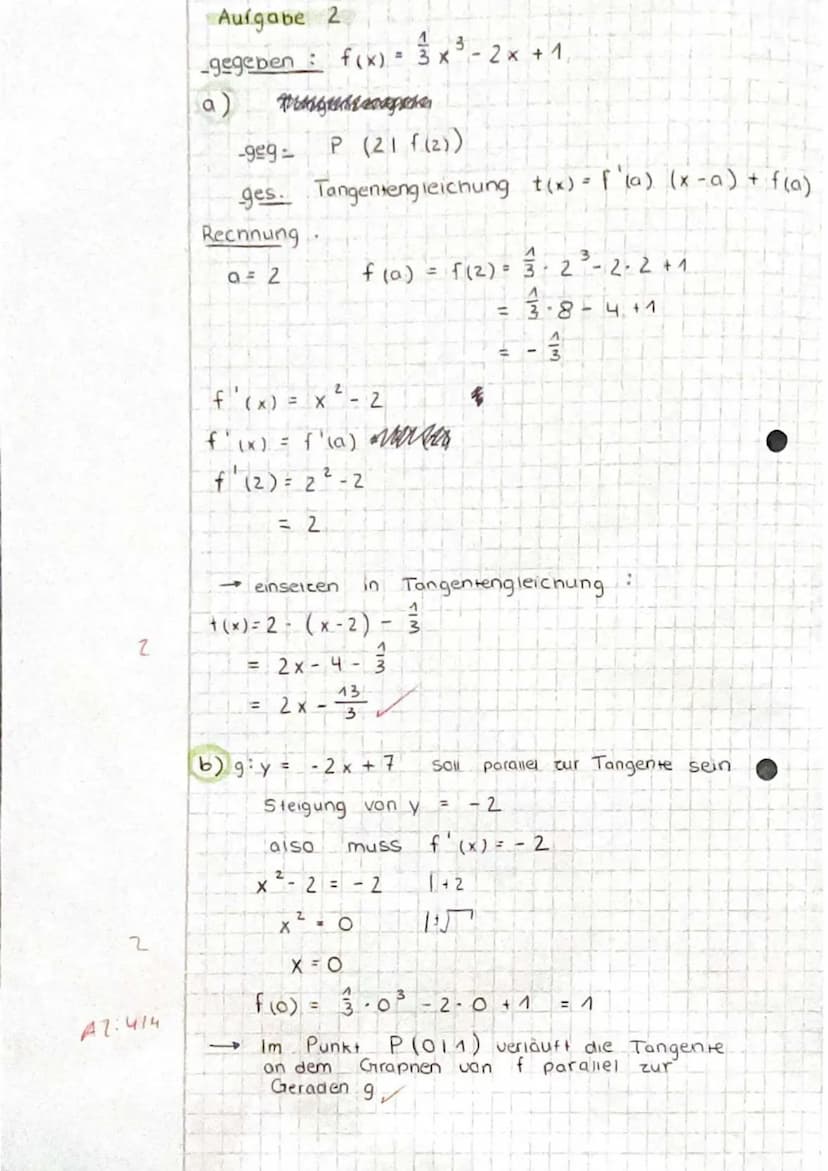 Aufgabe 2
-gegeben : f(x) = 1/3 x³ - 2x + 1
a)
-geg.: P (2 | f(2))
ges. Tangentengleichung t(x) = f'(a) (x-a) + f(a)
Rechnung.
a = 2 f(a) = f(2) = 1/3 · 2³ - 2·2 + 1
= 1/3 · 8 - 4 + 1
= - 1/3
f'(x) = x² - 2
f'(x) = f'(a)
f'(2) = 2² - 2
= 2
→ einsetzen in Tangentengleichung :
t(x) = 2 · (x-2) - 1/3
2
= 2x - 4 - 1/3
= 2x - 13/3 ✓
b) g: y = -2x + 7 soll parallel zur Tangente sein
Steigung von y = -2
also muss f'(x) = -2
x² - 2 = -2 |+2
x² = 0 |±√
2
x = 0
f(0) = 1/3 · 0³ - 2·0 + 1 = 1
A2: 4/4
→ Im Punkt P(0|1) verläuft die Tangente
an dem Graphen von f parallel zur
Geraden g ✓